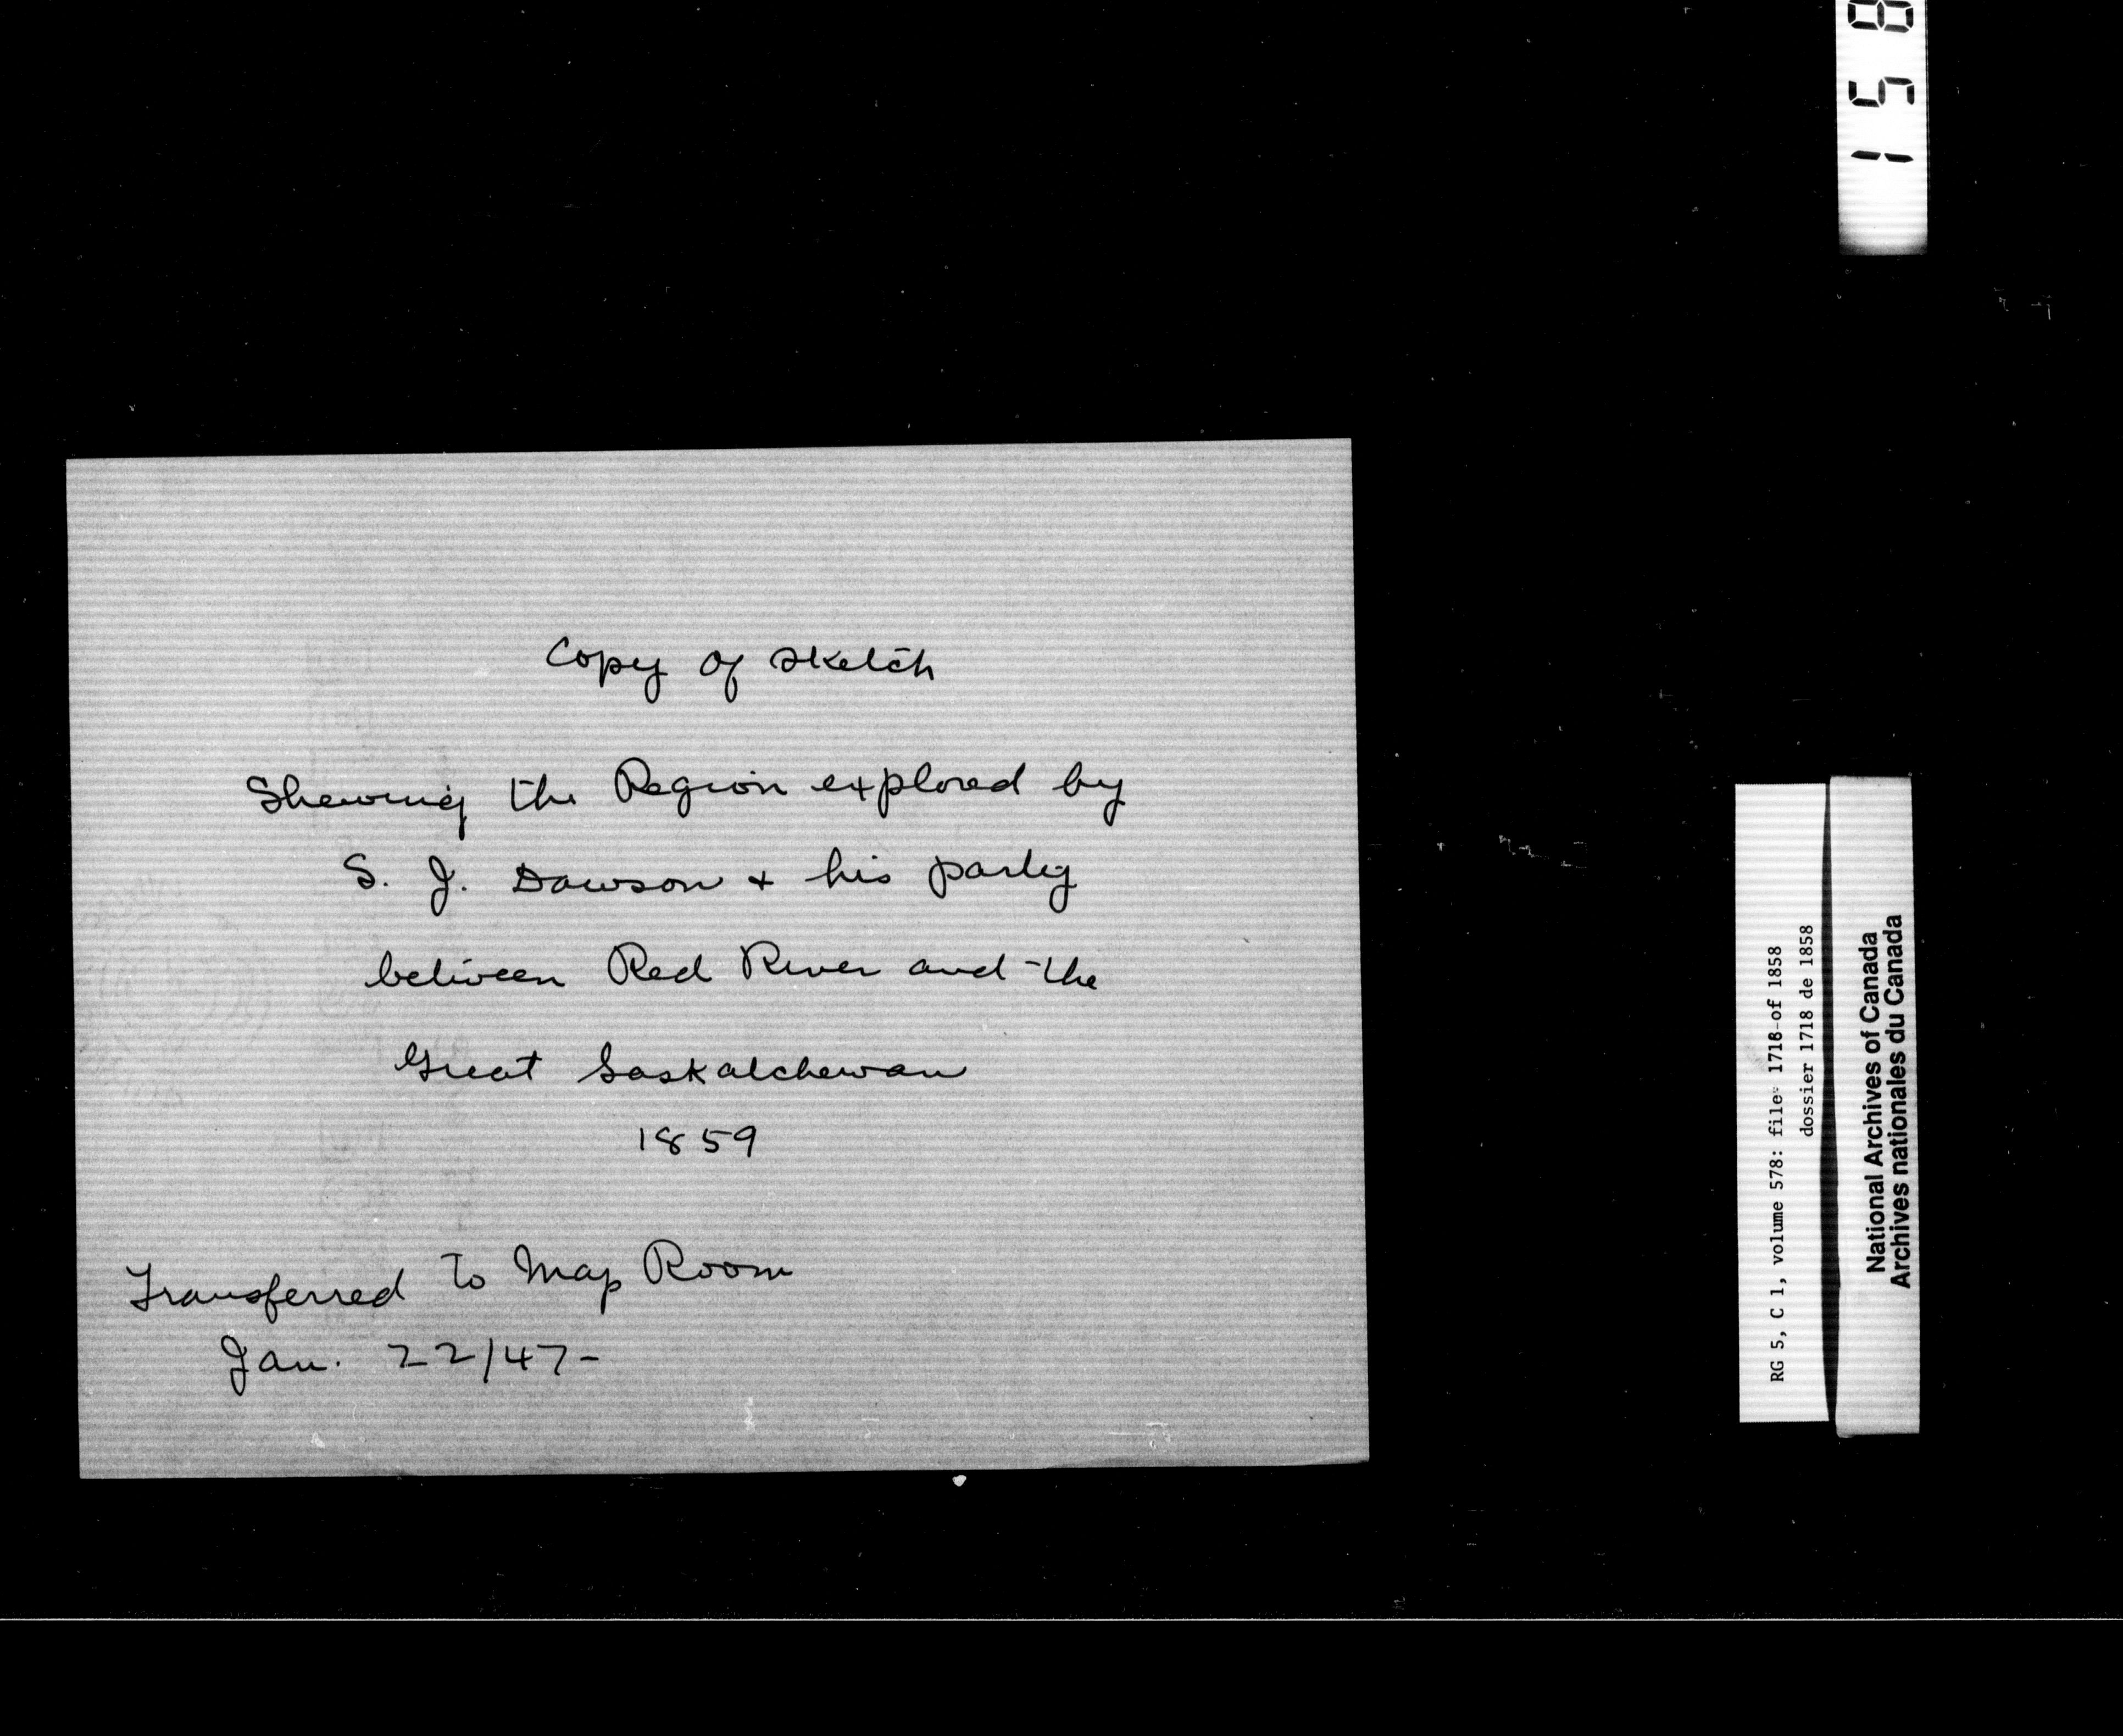 Copy of sketch
Shewing the Region explored by
S. J. Dawson + his party
between Red River and the
Great Saskatchewan
1859
Transferred to Map Room
Jan. 22/47-
158
RG 5, C 1, volume 578: file 1718 of 1858
dossier 1718 de 1858
National Archives of Canada
Archives nationales du Canada